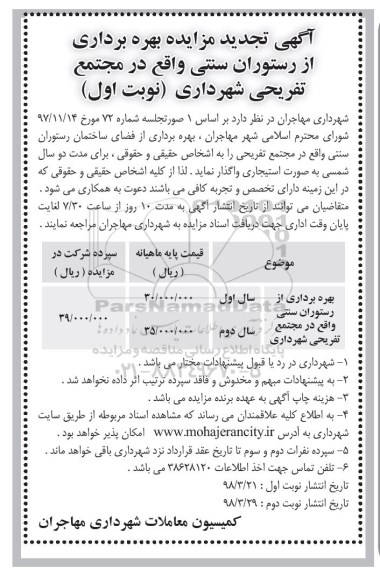 آگهی تجدید مزایده بهره برداری
از رستوران سنتی واقع در مجتمع
تفریحی شهرداری (نوبت اول)
شهرداری مهاجران در نظر دارد بر اساس ۱ صورتجلسه شماره ۷۲ مورخ ۹۷/۱۱/۱۴
شورای محترم اسلامی شهر مهاجران ، بهره برداری از فضای ساختمان رستوران
سنتی واقع در مجتمع تفریحی را به اشخاص حقیقی و حقوقی ، برای مدت دو سال
شمسی به صورت استیجاری واگذار نماید . لذا از کلیه اشخاص حقیقی و حقوقی که
در این زمینه دارای تخصص و تجربه کافی می باشند دعوت به همکاری می شود .
متقاضیان می توانند از تاریخ انتشار آگهی به مدت ۱۰ روز از ساعت ۷/۳۰ لغایت
پایان وقت اداری جهت دریافت اسناد مزایده به شهرداری مهاجران مراجعه نمایند .
موضوع قیمت پایه ماهیانه ( ریال ) سپرده شرکت در مزایده ( ریال )
بهره برداری از رستوران سنتی واقع در مجتمع تفریحی شهرداری
سال اول ۳۰/۰۰۰/۰۰۰
سال دوم ۳۵/۰۰۰/۰۰۰
۳۹/۰۰۰/۰۰۰
ParsNamadData
پایگاه اطلاع رسانی مناقصه و مزایده
۱- شهرداری در رد یا قبول پیشنهادات مختار می باشد .
۲- به پیشنهادات مبهم و مخدوش و فاقد سپرده ترتیب اثر داده نخواهد شد .
۳- هزینه چاپ آگهی به عهده برنده مزایده می باشد .
۴- به اطلاع کلیه علاقمندان می رساند که مشاهده اسناد مربوطه از طریق سایت
شهرداری به آدرس www.mohajerancity.ir امکان پذیر خواهد بود .
۵- سپرده نفرات دوم و سوم تا تاریخ عقد قرارداد نزد شهرداری باقی خواهد ماند .
۶- تلفن تماس جهت اخذ اطلاعات ۳۸۶۲۸۱۲۰ می باشد .
تاریخ انتشار نوبت اول : ۹۸/۳/۲۱
تاریخ انتشار نوبت دوم : ۹۸/۳/۲۹
کمیسیون معاملات شهرداری مهاجران